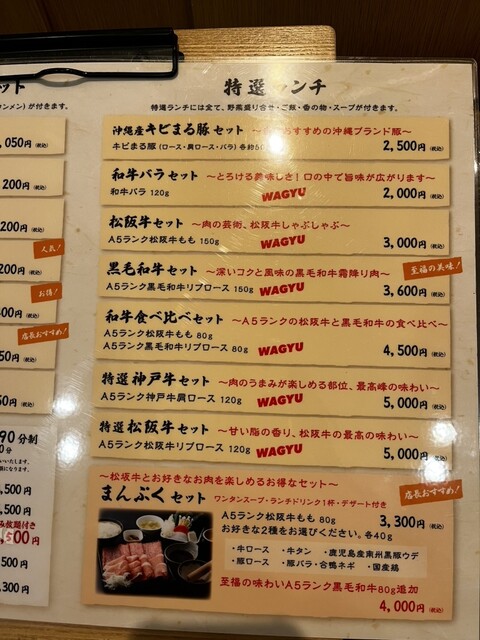 セット
ーメン) が付きます。
,050円 (税込)
200円 (税込)
200円 (税込)
人気!
200円 (税込)
お得!
400円 (税込)
店長おすすめ!
50円 (税込)
50円 (税込)
90分制
,500円
,500円
み放題付き
,500円
,300円
特選ランチ
特選ランチには全て、野菜盛り合せ・ご飯・香の物・スープが付きます。
沖縄産キビまる豚セット
すすめの沖縄ブランド豚～
キビまる豚 (ロース・肩ロース・バラ) 各約50
2,500円 (税込)
和牛バラセット ～とろける美味しさ! 口の中で旨味が広がります～
和牛バラ 120g
WAGYU
2,000円 (税込)
松阪牛セット ～肉の芸術、松阪牛しゃぶしゃぶ～
A5ランク松阪牛もも 150g
WAGYU
3,000円 (税込)
至福の美味!
黒毛和牛セット ～深いコクと風味の黒毛和牛霜降り肉～
A5ランク黒毛和牛リブロース 150g
WAGYU
3,600円 (税込)
和牛食べ比べセット ～A5ランクの松阪牛と黒毛和牛の食べ比べ～
A5ランク松阪牛もも 80g
A5ランク黒毛和牛リブロース 80g
WAGYU
4,500円 (税込)
特選神戸牛セット ～肉のうまみが楽しめる部位、最高峰の味わい～
A5ランク神戸牛肩ロース 120g
WAGYU
5,000円 (税込)
特選松阪牛セット ～甘い脂の香り、松阪牛の最高の味わい～
A5ランク松阪牛リブロース 120g
WAGYU
5,000円 (税込)
店長おすすめ!
～松坂牛とお好きなお肉を楽しめるお得なセット～
まんぷくセット ワンタンスープ・ランチドリンク1杯・デザート付き
A5ランク松阪牛もも 80g
3,300円 (税込)
お好きな2種をお選びください。各40g
・牛ロース ・牛タン ・鹿児島産南州黒豚ウデ
・豚ロース ・豚バラ・合鴨ネギ ・国産鶏
至福の味わいA5ランク黒毛和牛80g追加
4,000円 (税込)